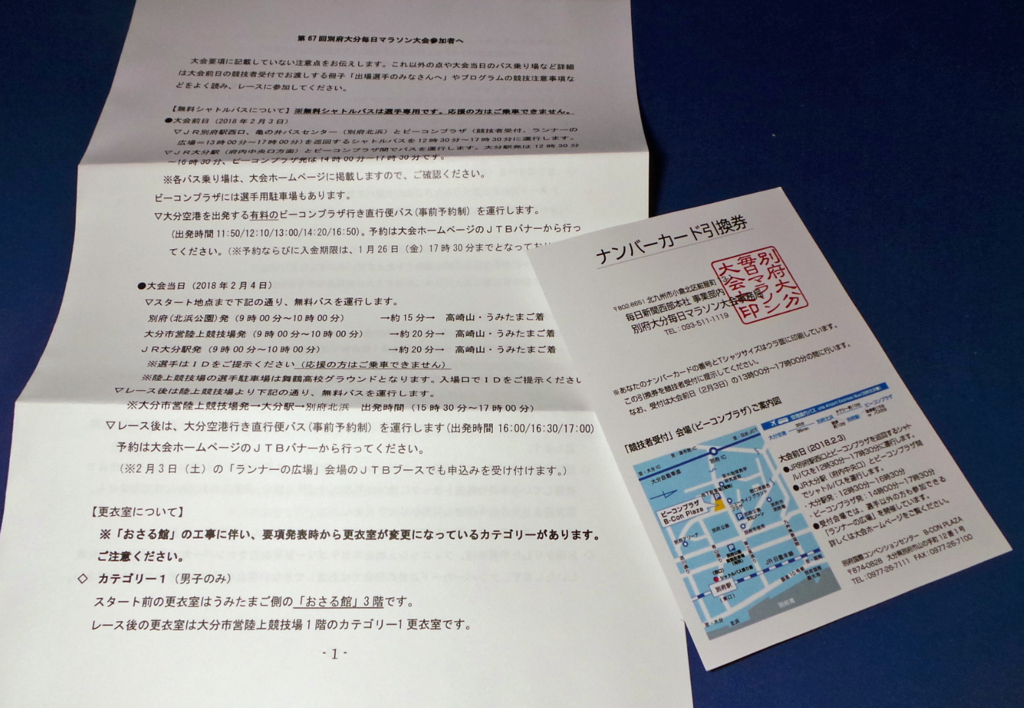 第67回別府大分毎日マラソン大会参加者へ
大会要項に記載していない注意点をお伝えします。これ以外の点や大会当日のバス乗り場など詳細
は大会前日の競技者受付でお渡しする冊子「出場選手のみなさんへ」やプログラムの競技注意事項な
どをよく読み、レースに参加してください。
【無料シャトルバスについて】※無料シャトルバスは選手専用です。応援の方はご乗車できません。
●大会前日（2018年2月3日）
▽JR別府駅西口、亀の井バスセンター（別府北浜）とビーコンプラザ（競技者受付、ランナーの
広場＝13時00分～17時00分）を巡回するシャトルバスを12時30分～17時30分に運行します。
▽JR大分駅（府内中央口方面）とビーコンプラザ間でバスを運行します。大分駅発は12時30分
～16時30分、ビーコンプラザ発は14時00分～17時30分です。
※各バス乗り場は、大会ホームページに掲載しますので、ご確認ください。
ビーコンプラザには選手用駐車場もあります。
▽大分空港を出発する有料のビーコンプラザ行き直行便バス(事前予約制）を運行します。
（出発時間 11:50/12:10/13:00/14:20/16:50）。予約は大会ホームページのJTBバナーから行っ
てください。（※予約ならびに入金期限は、1月26日（金）17時30分までとなってお
●大会当日（2018年2月4日）
▽スタート地点まで下記の通り、無料バスを運行します。
別府(北浜公園)発（9時00分～10時00分） →約15分→ 高崎山・うみたまご着
大分市営陸上競技場発（9時00分～10時00分） →約20分→ 高崎山・うみたまご着
JR大分駅発（9時00分～10時00分） →約20分→ 高崎山・うみたまご着
※選手はIDをご提示ください（応援の方はご乗車できません）
※陸上競技場の選手駐車場は舞鶴高校グラウンドとなります。入場口でIDをご提示ください
▽レース後は陸上競技場より下記の通り、無料バスを運行します。
※大分市営陸上競技場発→大分駅→別府北浜 出発時間（15時30分～17時00分）
▽レース後、大分空港行き直行便バス(事前予約制）を運行します(出発時間 16:00/16:30/17:00)
予約は大会ホームページのJTBバナーから行ってください。
（※2月3日（土）の「ランナーの広場」会場のJTBブースでも申込みを受け付けます。）
【更衣室について】
※「おさる館」の工事に伴い、要項発表時から更衣室が変更になっているカテゴリーがあります。
ご注意ください。
◇ カテゴリー1（男子のみ）
スタート前の更衣室はうみたまご側の「おさる館」3階です。
レース後の更衣室は大分市営陸上競技場1階のカテゴリー1更衣室です。
- 1 -
ナンバーカード引換券
〒802-8651 北九州市小倉北区紺屋町
毎日新聞西部本社 事業部内
別府大分毎日マラソン大会事務局
TEL：093-511-1119
別府大分
毎日マラソン
大会之印
※あなたのナンバーカードの番号とTシャツサイズはウラ面に印刷しています。
この引換券を競技者受付に提示してください。
なお、受付は大会前日（2月3日）の13時00分～17時00分の間に行います。
「競技者受付」会場（ビーコンプラザ）ご案内図
ビーコンプラザ
B-Con Plaza
別府駅
JR日豊本線
別府湾
大会前日（2018.2.3）
●JR別府駅西口とビーコンプラザを巡回するシャト
ルバスを12時30分～17時30分に運行します。
●JR大分駅（府内中央口）とビーコンプラザ間
でシャトルバスを運行します。
・大分駅発：12時30分～16時30分
・ビーコンプラザ発：14時00分～17時30分
●受付会場では、選手以外の方も参加できる
「ランナーの広場」を開催しています。
詳しくは大会ホームページをご覧ください。
別府国際コンベンションセンター B-CON PLAZA
〒874-0828 大分県別府市山の手町12番1号
TEL：0977-26-7111 FAX：0977-26-7100